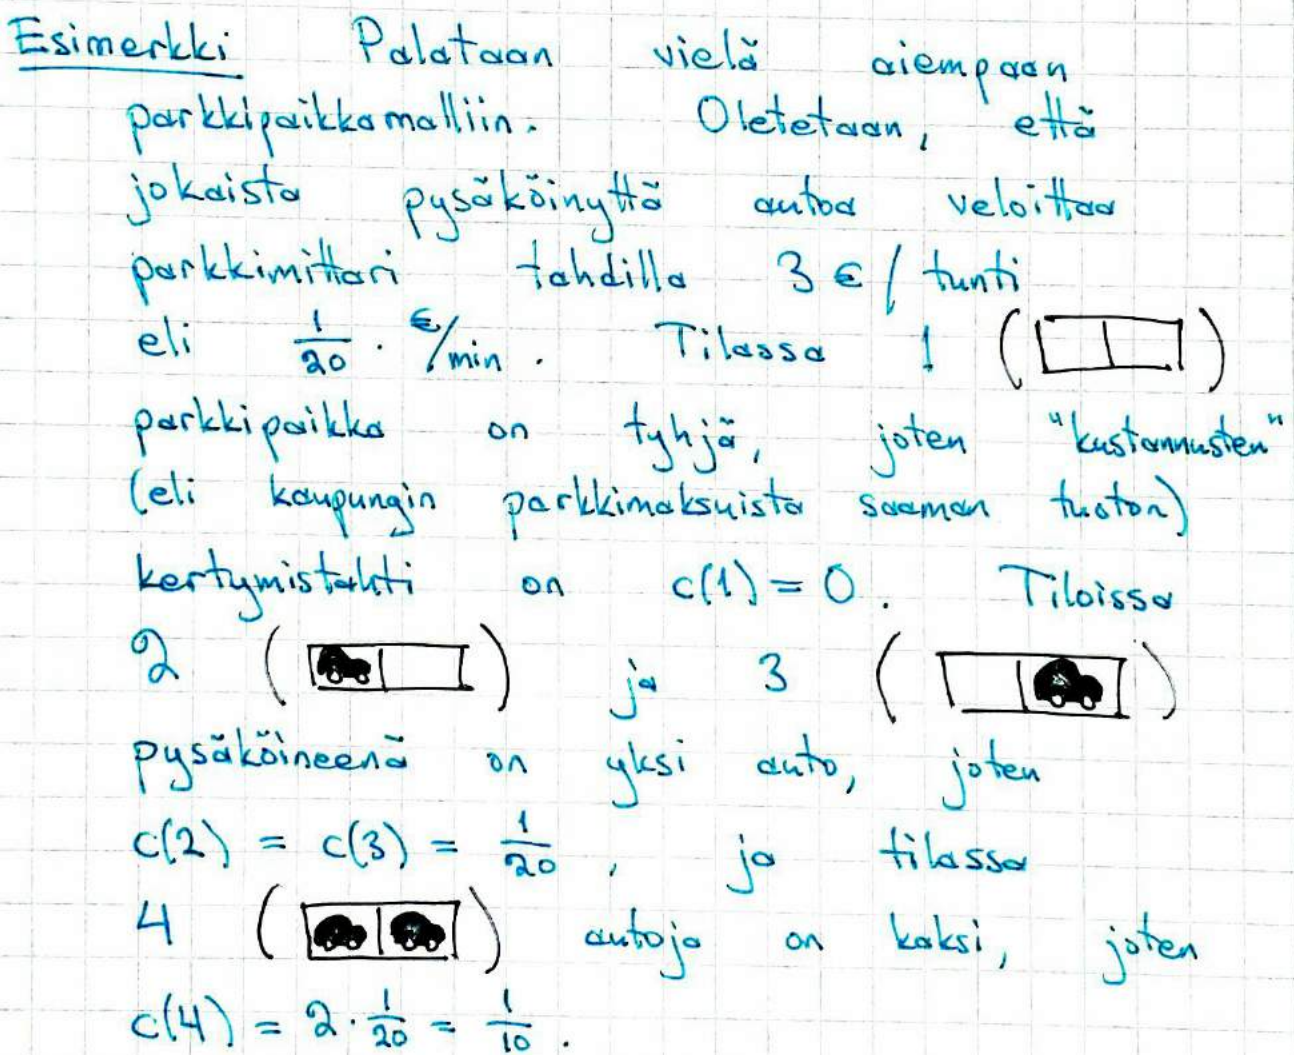 Esimerkki Palataan vielä aiempaan
parkkipaikkamalliin. Oletetaan, että
jokaista pysäköinyttä autoa veloittaa
parkkimittari tahdilla 3 € / tunti
eli 1/20 · €/min. Tilassa 1 ( )
parkkipaikka on tyhjä, joten "kustannusten"
(eli kaupungin parkkimaksuista saaman tuoton)
kertymistahti on c(1) = 0. Tiloissa
2 ( ) ja 3 ( )
pysäköineenä on yksi auto, joten
c(2) = c(3) = 1/20, ja tilassa
4 ( ) autoja on kaksi, joten
c(4) = 2 · 1/20 = 1/10.